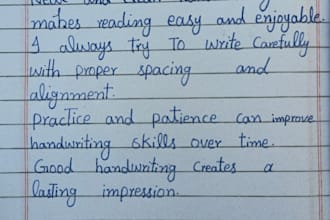 makes reading easy and enjoyable.
I always try To write Carefully
with proper spacing and
alignment.
Practice and patience can improve
handwriting skills over time.
Good handwriting Creates a
lasting impression.